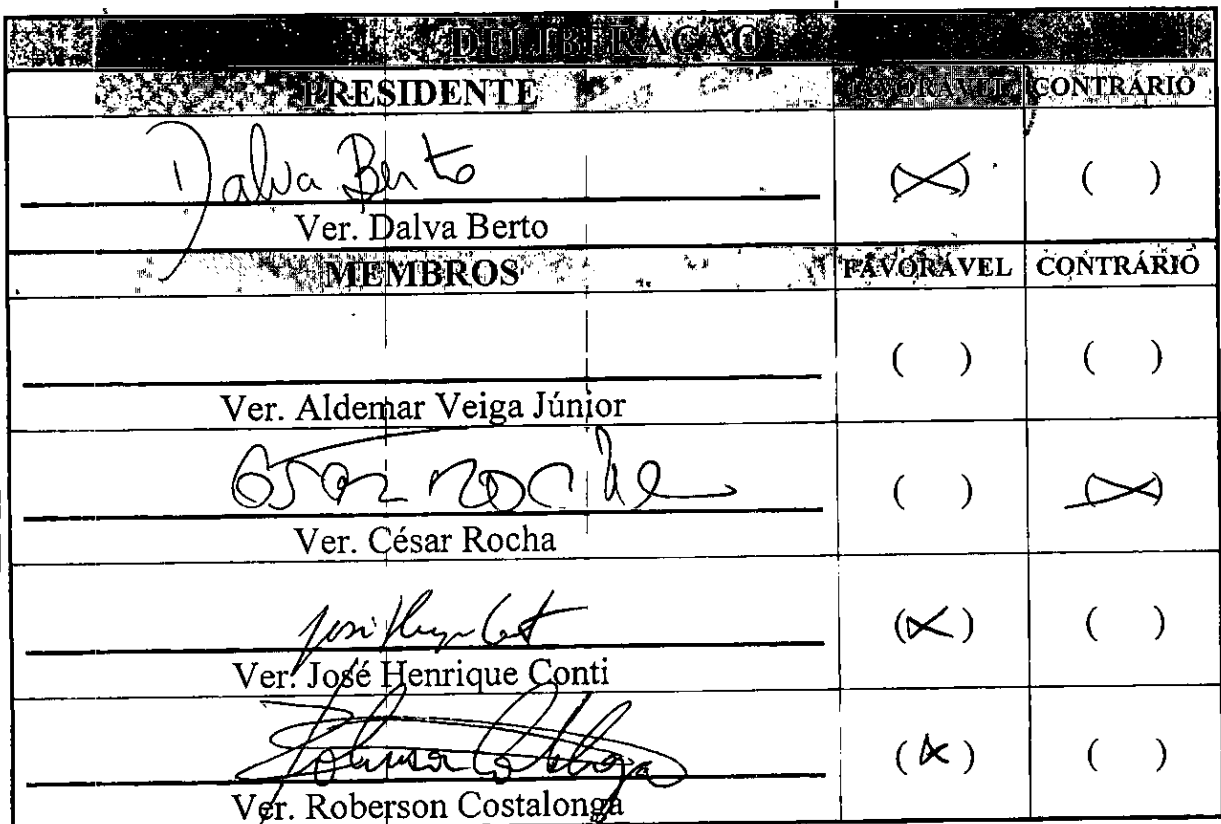 DELIBERAÇÃO
PRESIDENTE FAVORÁVEL CONTRÁRIO
Dalva Berto (X) ( )
Ver. Dalva Berto
MEMBROS FAVORÁVEL CONTRÁRIO
( ) ( )
Ver. Aldemar Veiga Júnior
César Rocha ( ) (X)
Ver. César Rocha
(X) ( )
Ver. José Henrique Conti
(X) ( )
Ver. Roberson Costalonga